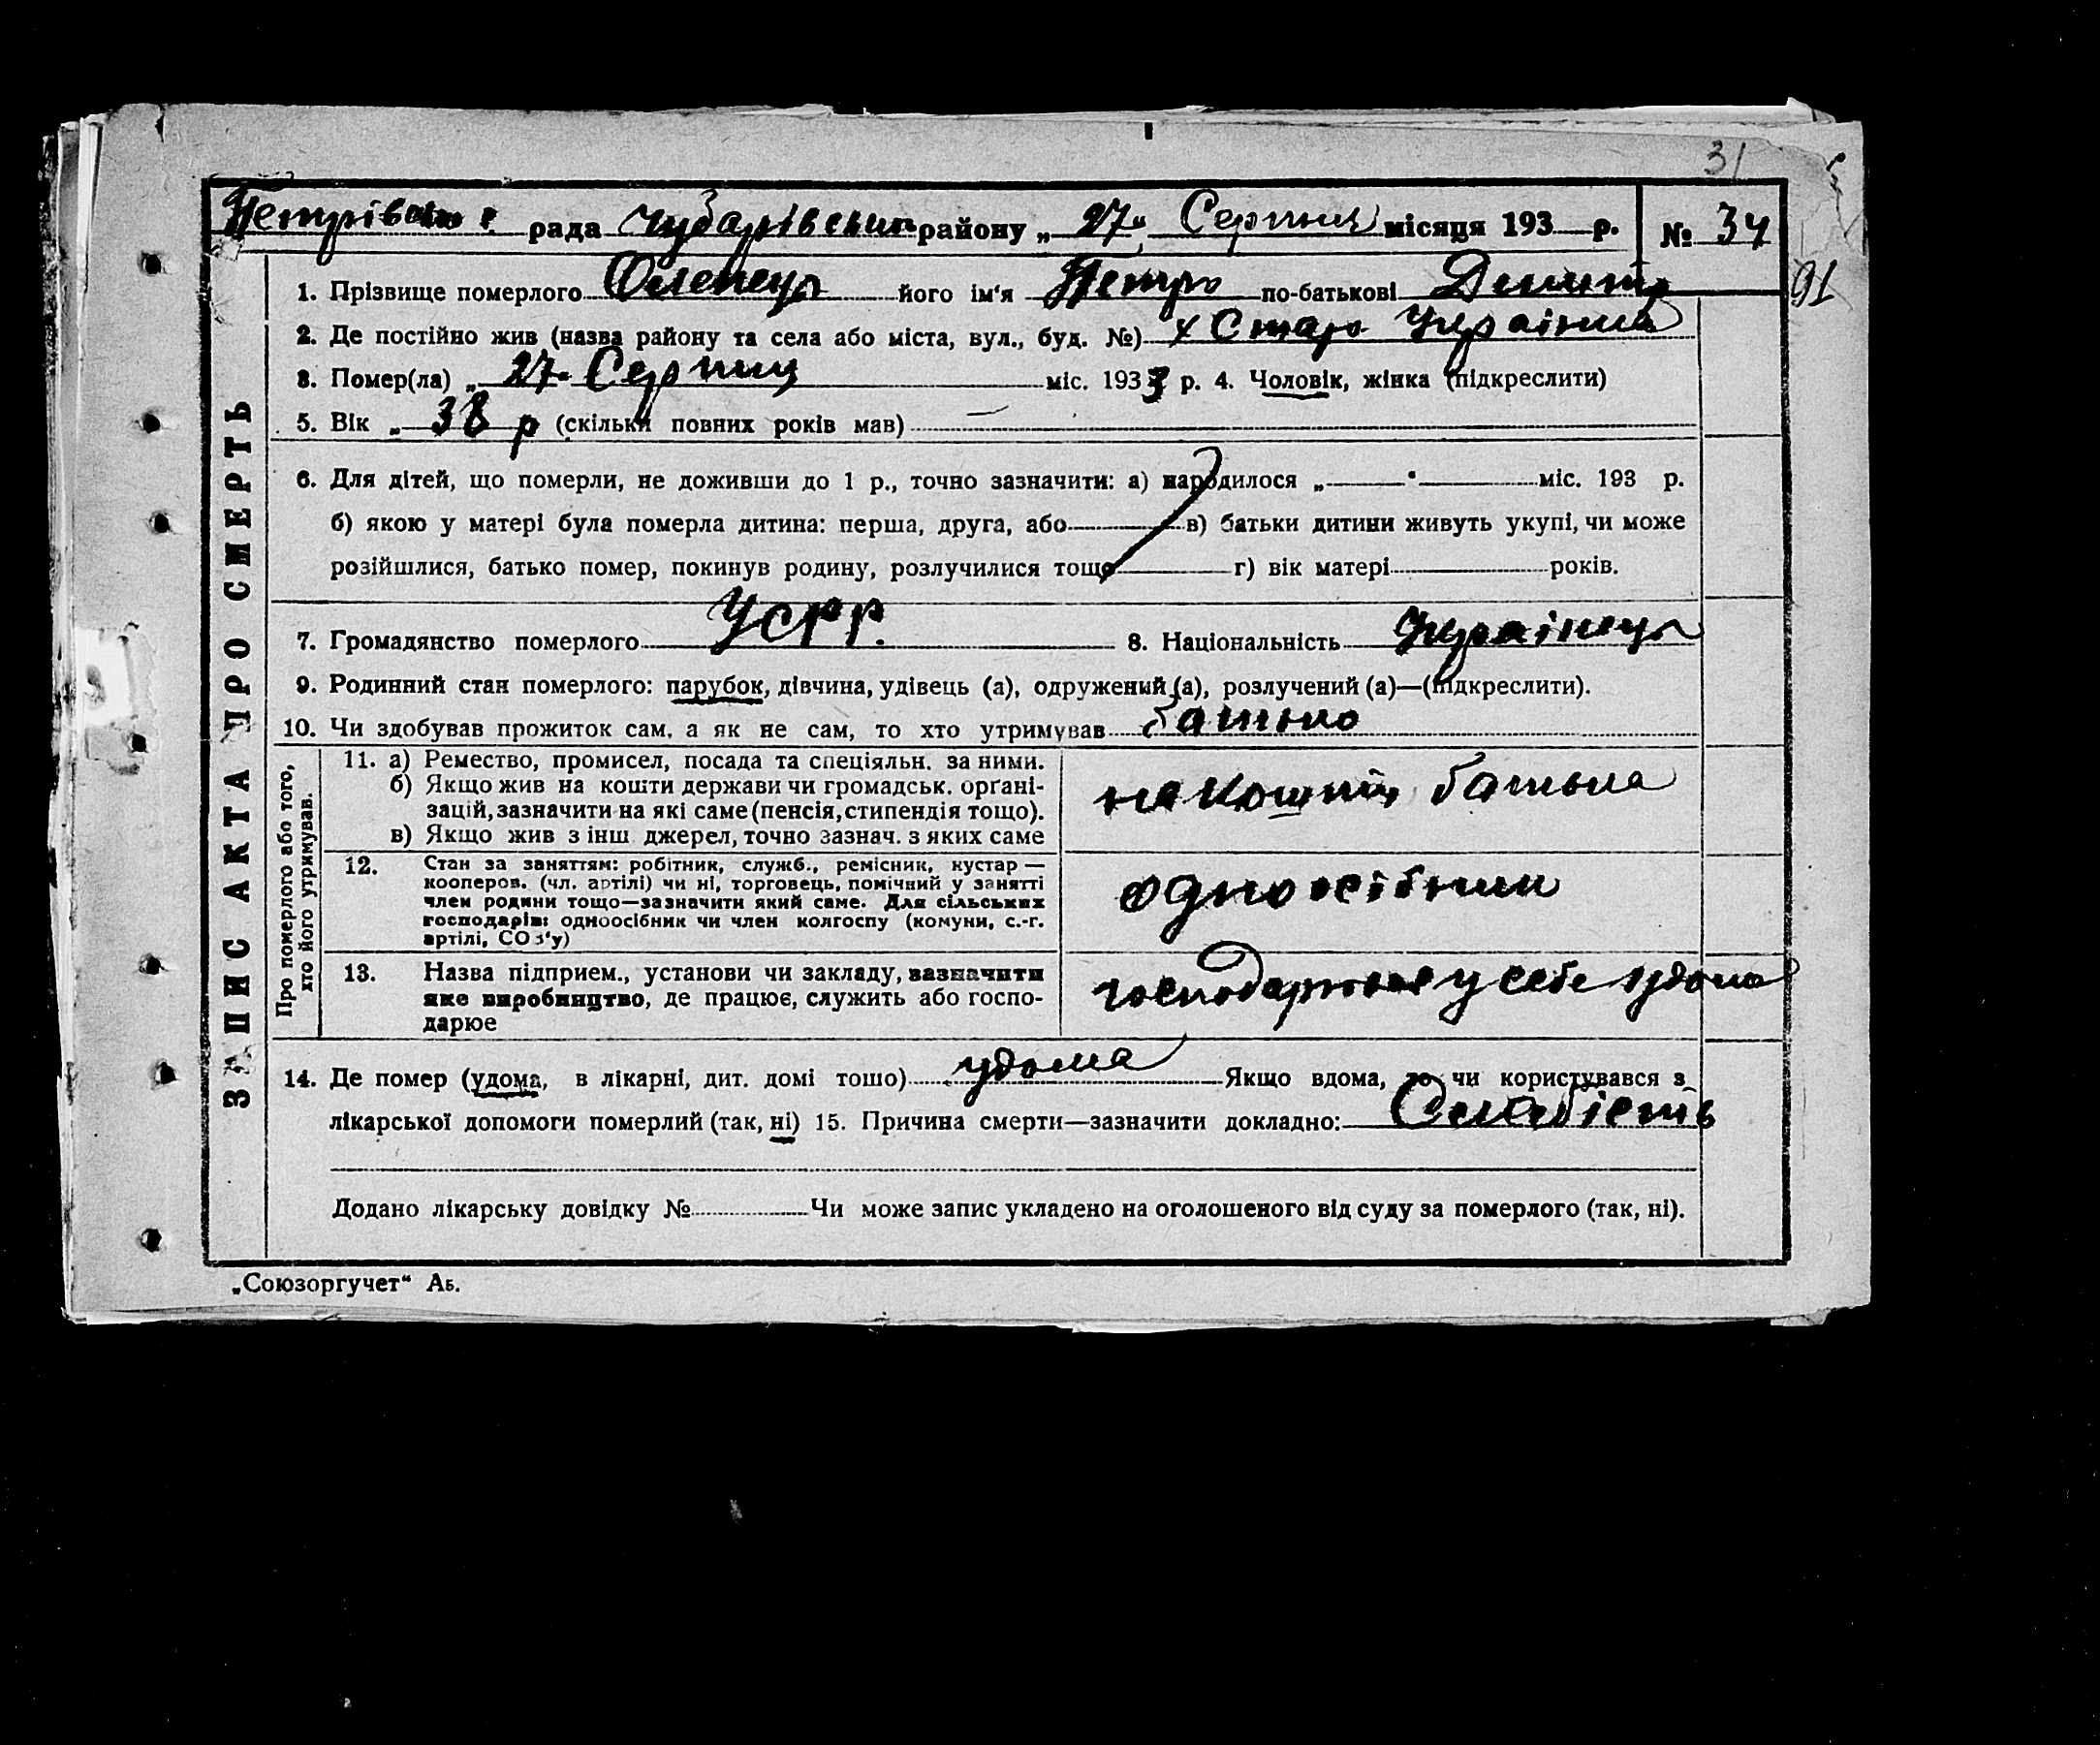 31
Петрівська рада Чубарівськ району „27“ Серпня місяця 193 р. № 34
91
1. Прізвище померлого Оленець його ім'я Петро по-батькові
2. Де постійно жив (назва району та села або міста, вул., буд. №) х Старо Українка
3. Помер(ла) „27 Серпня міс. 1933 р. 4. Чоловік, жінка (підкреслити)
5. Вік „38 р (скільки повних років мав) —
6. Для дітей, що померли, не доживши до 1 р., точно зазначити: а) народилося „ “ міс. 193 р.
б) якою у матері була померла дитина: перша, друга, або в) батьки дитини живуть укупі, чи може
розійшлися, батько помер, покинув родину, розлучилися тощо г) вік матері років.
7. Громадянство померлого УСРР. 8. Національність Українець
9. Родинний стан померлого: парубок, дівчина, удівець (а), одружений (а), розлучений (а)—(підкреслити).
10. Чи здобував прожиток сам, а як не сам, то хто утримував батько
ЗАПИС АКТА ПРО СМЕРТЬ
Про померлого або того,
хто його утримував.
11. а) Ремество, промисел, посада та спеціяльн. за ними.
б) Якщо жив на кошти держави чи громадськ. орґані-
зацій, зазначити на які саме (пенсія, стипендія тощо).
в) Якщо жив з інш джерел, точно зазнач. з яких саме
на кошти батька
12. Стан за заняттям: робітник, служб., ремісник, кустар —
кооперов. (чл. артілі) чи ні, торговець, помічний у занятті
член родини тощо—зазначити який саме. Для сільських
господарів: одноосібник чи член колгоспу (комуни, с.-г.
артілі, СОЗ'у)
одноосібник
13. Назва підприєм., установи чи закладу, зазначити
яке виробництво, де працює, служить або госпо-
дарює
у себе удома
14. Де помер (удома, в лікарні, дит. домі тошо) удома Якщо вдома, то чи користувався з
лікарської допомоги померлий (так, ні) 15. Причина смерти—зазначити докладно: Слабість
Додано лікарську довідку № Чи може запис укладено на оголошеного від суду за померлого (так, ні).
„Союзоргучет“ Аб.